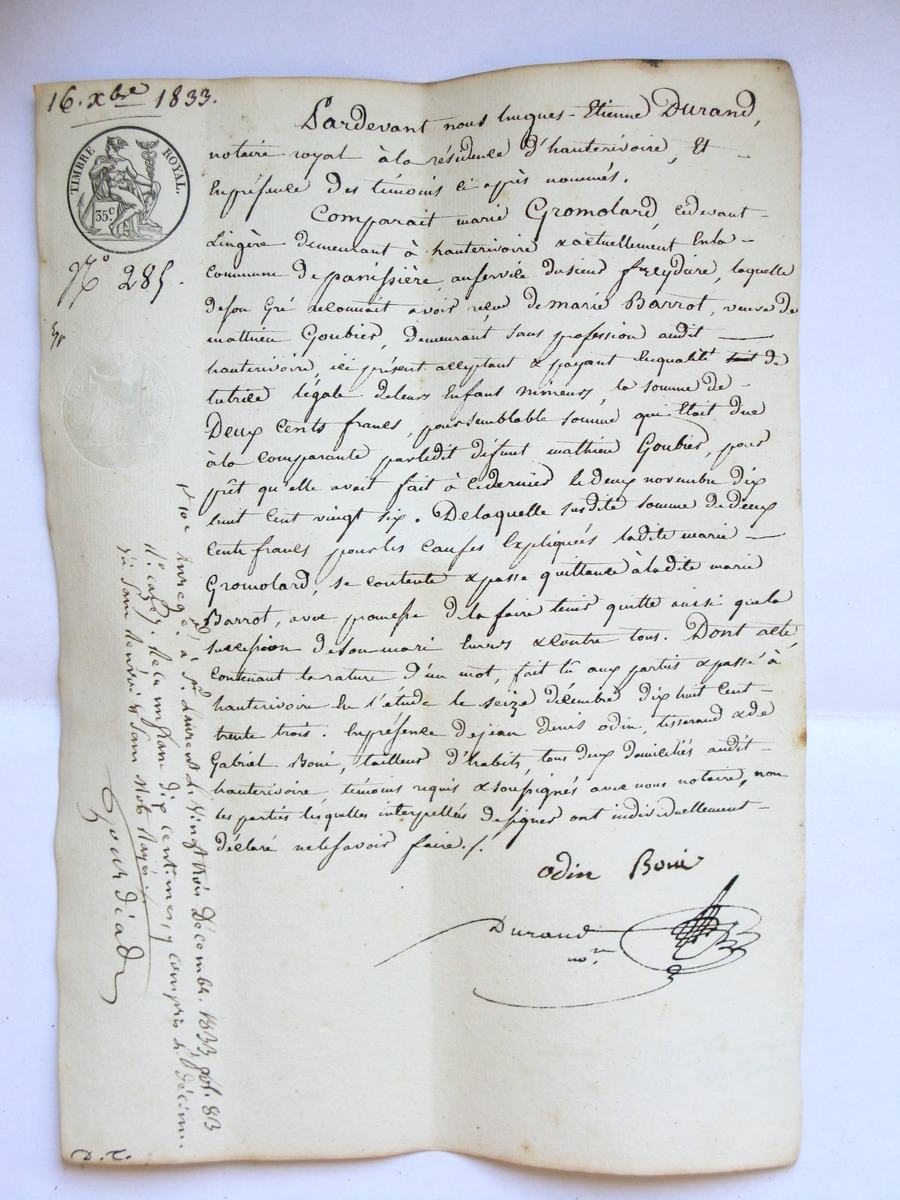 16. xbre 1833.
TIMBRE ROYAL.
35c
No 285.
Pardevant nous hugues-Etienne Durand,
notaire royal à la résidence d'hauterivoire, Et
En présence des témoins ci après nommés.
Comparait marie Gromolard cidevant
Lingère demeurant à hauterivoire & actuellement En la
commune de panissière, au service du sieur freydière, laquelle
de son Gré reconnait avoir reçu de marie Barrot, veuve de
mathieu Goubier, demeurant sans profession audit
hauterivoire, ici présent acceptant & payant En qualité de
tutrice légale de leurs Enfans mineurs, la somme de
Deux cents francs, pour semblable somme qui Etait due
à la comparante par ledit défunt mathieu Goubier, pour
prêt qu'elle avait fait à ce dernier le deux novembre dix
huit cent vingt six. De laquelle susdite somme de deux
Cents francs pour les causes Expliquées ladite marie
Gromolard, se contente & passe quittance à ladite marie
Barrot, avec promesse de la faire tenir quitte ainsi que la
succession de son mari Envers & contre tous. Dont acte
contenant la rature d'un mot, fait lu aux partis & passé à
hauterivoire En l'étude le seize décembre dix huit cent
trente trois. En présence de jean denis odin, tisserand & de
Gabriel Boni, tailleur d'habits, tous deux domiciliés audit
hauterivoire témoins requis & soussignés avec nous notaire, non
les parties lesquelles interpellées de signer ont individuellement
déclaré ne le savoir faire./.
odin Boni
Durand
nore
Enregé. à St. Laurent le Vingt trois Décembre 1833, fol. 83
Ro. case 7. Reçu un franc dix centimes, y compris le décime.